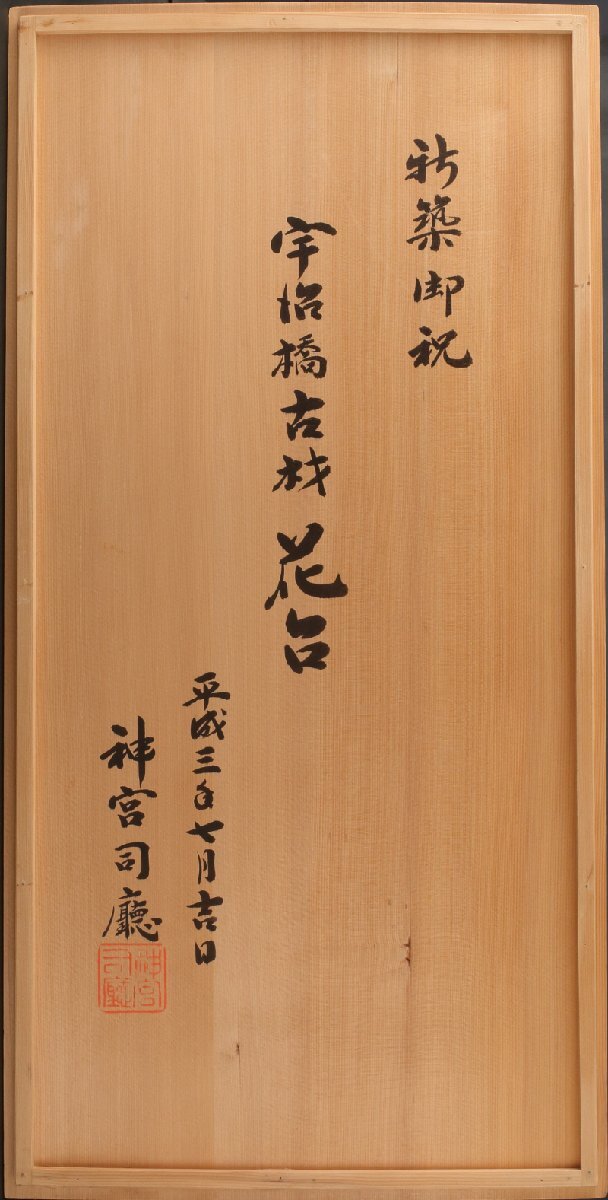 新築御祝
宇治橋古材 花台
平成三年七月吉日
神宮司廳
神宮司廳